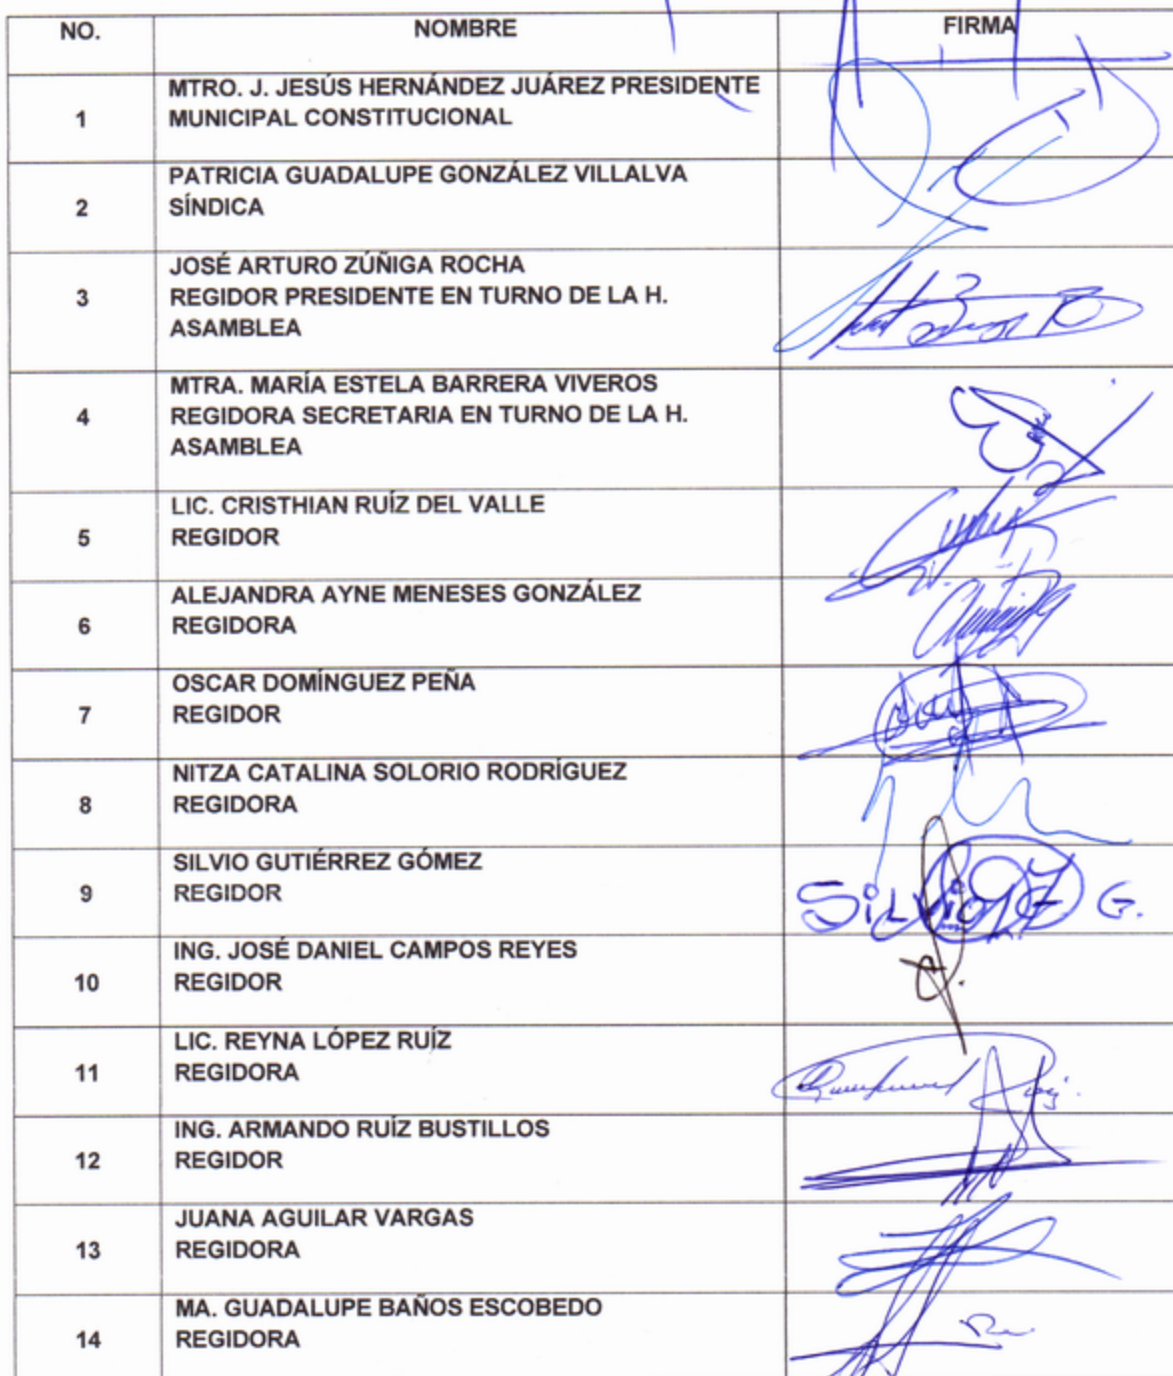 NO. NOMBRE FIRMA
1 MTRO. J. JESÚS HERNÁNDEZ JUÁREZ PRESIDENTE
MUNICIPAL CONSTITUCIONAL
2 PATRICIA GUADALUPE GONZÁLEZ VILLALVA
SÍNDICA
3 JOSÉ ARTURO ZÚÑIGA ROCHA
REGIDOR PRESIDENTE EN TURNO DE LA H.
ASAMBLEA
4 MTRA. MARÍA ESTELA BARRERA VIVEROS
REGIDORA SECRETARIA EN TURNO DE LA H.
ASAMBLEA
5 LIC. CRISTHIAN RUÍZ DEL VALLE
REGIDOR
6 ALEJANDRA AYNE MENESES GONZÁLEZ
REGIDORA
7 OSCAR DOMÍNGUEZ PEÑA
REGIDOR
8 NITZA CATALINA SOLORIO RODRÍGUEZ
REGIDORA
9 SILVIO GUTIÉRREZ GÓMEZ
REGIDOR
SiLvio G.
10 ING. JOSÉ DANIEL CAMPOS REYES
REGIDOR
11 LIC. REYNA LÓPEZ RUÍZ
REGIDORA
12 ING. ARMANDO RUÍZ BUSTILLOS
REGIDOR
13 JUANA AGUILAR VARGAS
REGIDORA
14 MA. GUADALUPE BAÑOS ESCOBEDO
REGIDORA